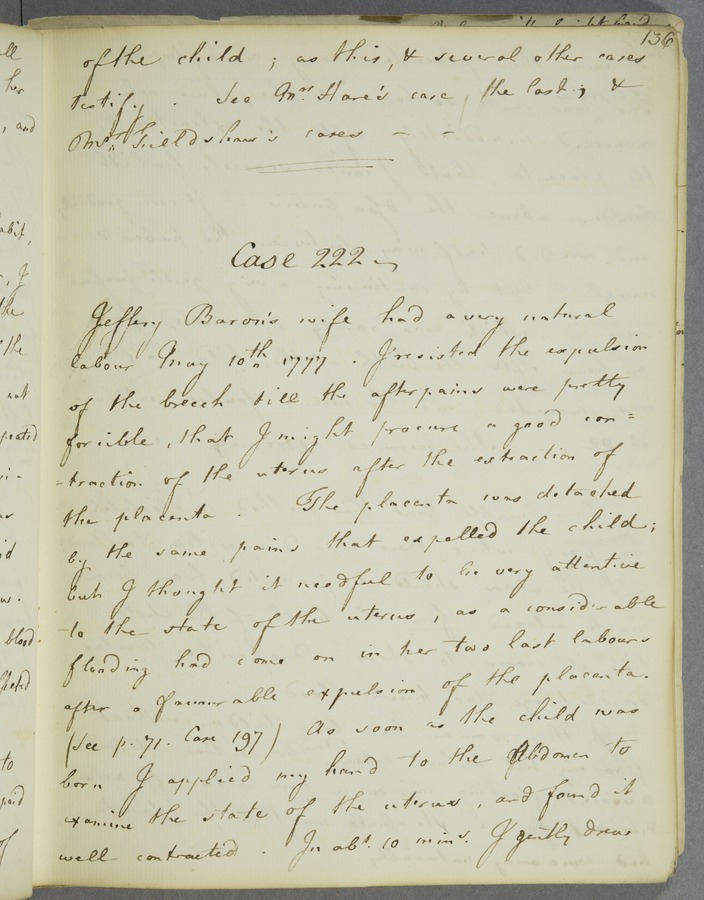 136
of the child ; as this, & several other cases
testify . See Mrs. Hare's case, the last ; & 
Mrs. Fieldshaw's cases - -
Case 222
Jeffery Baron's wife had a very natural
labour May 10th 1777 . I resisted the expulsion
of the breech till the afterpains were pretty
forcible, that I might procure a good con=
=traction of the uterus after the extraction of
the placenta . The placenta was detached
by the same pains that expelled the child ;
but I thought it needful to be very attentive
to the state of the uterus, as a considerable
flooding had come on in her two last labours
after a favourable expulsion of the placenta.
(See p. 71. Case 197) As soon as the child was
born I applied my hand to the Abdomen to
examine the state of the uterus, and found it
well contracted . In abt. 10 mins. I gently drew